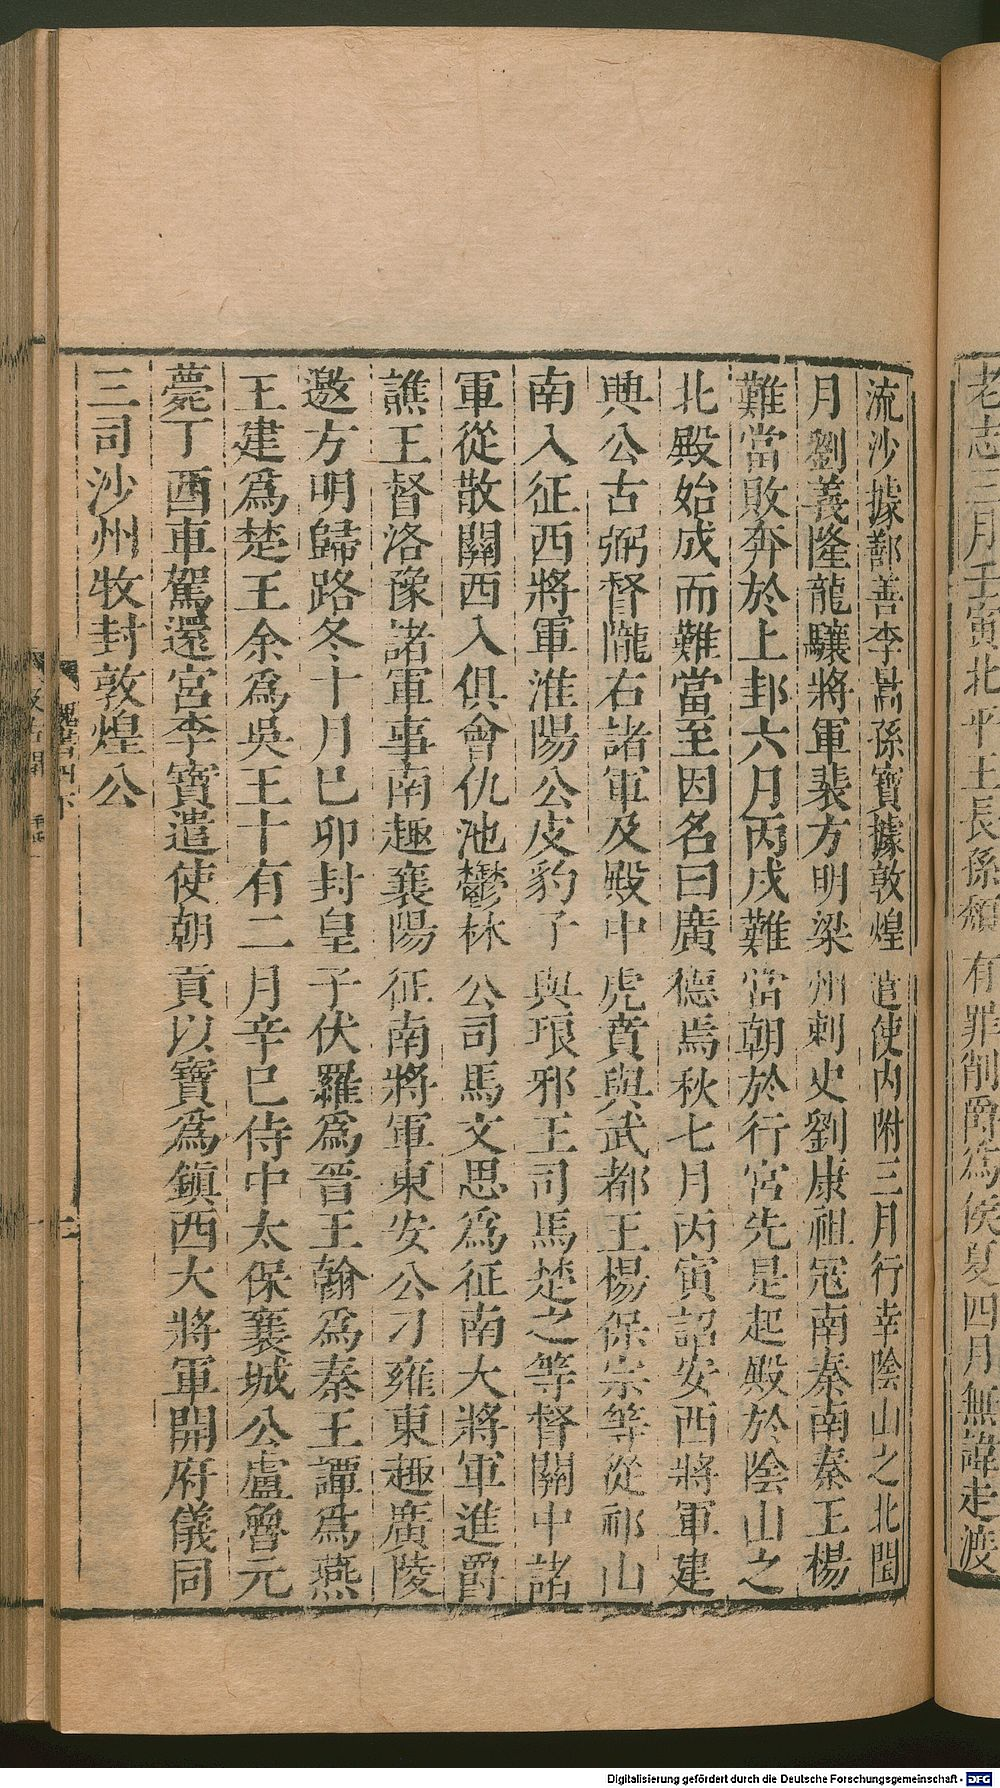 老志三月壬寅北平王長孫頹有罪削爵爲侯夏四月無諱走渡
流沙據鄯善李暠孫寶據敦煌遣使內附三月行幸陰山之北閏
月劉義隆龍驤將軍裴方明梁州刺史劉康祖寇南秦南秦王楊
難當敗奔於上邽六月丙戌難當朝於行宮先是起殿於陰山之
北殿始成而難當至因名曰廣德焉秋七月丙寅詔安西將軍建
興公古弼督隴右諸軍及殿中虎賁與武都王楊保宗等從祁山
南入征西將軍淮陽公皮豹子與琅邪王司馬楚之等督關中諸
軍從散關西入俱會仇池鬱林公司馬文思爲征南大將軍進爵
譙王督洛豫諸軍事南趣襄陽征南將軍東安公刁雍東趣廣陵
邀方明歸路冬十月己卯封皇子伏羅爲晉王翰爲秦王譚爲燕
王建爲楚王余爲吳王十有二月辛巳侍中太保襄城公盧魯元
薨丁酉車駕還宮李寶遣使朝貢以寶爲鎮西大將軍開府儀同
三司沙州牧封敦煌公
魏書四下
Digitalisierung gefördert durch die Deutsche Forschungsgemeinschaft - DFG